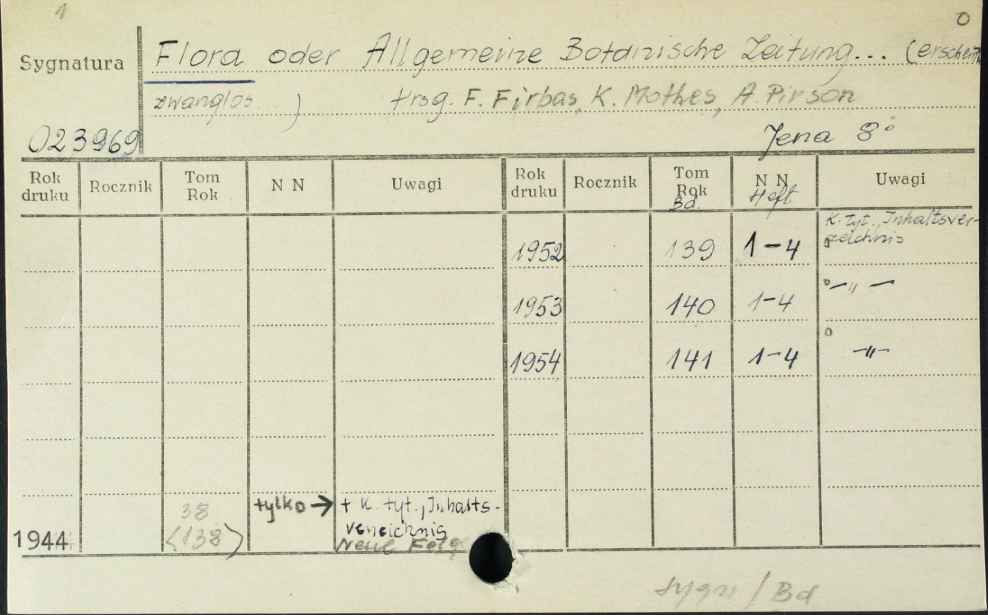 1
0
Sygnatura
Flora oder Allgemeine Botanische Zeitung... (erscheint
zwanglos )
Hrsg. F. Firbas, K. Mothes, A. Pirson
023969
Jena 8°
Rok druku Rocznik Tom Rok N N Uwagi Rok druku Rocznik Tom Rok Bd. N N Heft Uwagi
1952 139 1-4 K. tyt., Inhaltsver-
zeichnis
1953 140 1-4 —〃—
1954 141 1-4 —〃—
1944 38 (138) tylko → + K. tyt., Inhalts-
verzeichnis
Neue Folge
sygn / Bd